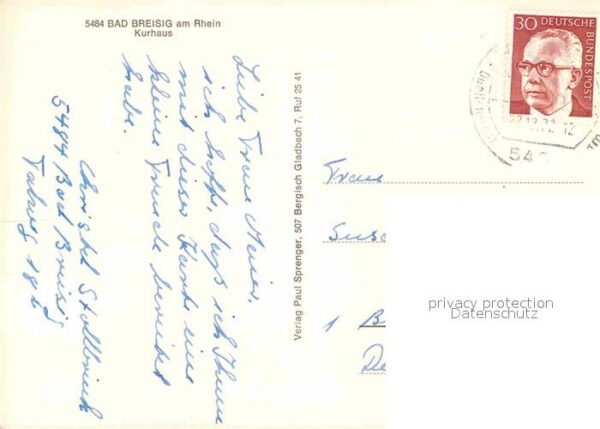 5484 BAD BREISIG am Rhein
Kurhaus
Liebe Frau Meier,
ich hoffe, daß ich Ihnen
mit dieser Karte eine
kleine Freude bereitet
habe.
Christel Stollbrink
5484 Bad Breisig
Verlag Paul Sprenger, 507 Bergisch Gladbach 7, Ruf 25 41
30 DEUTSCHE
BUNDESPOST
12
54
Frau
1 B
privacy protection
Datenschutz